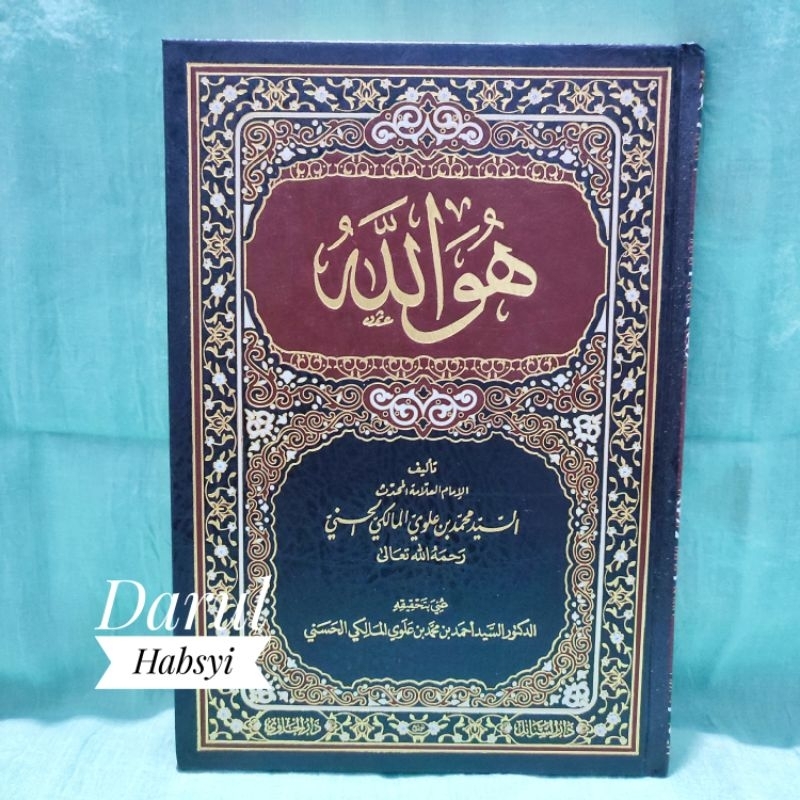 هُوَ اللَّهُ
تأليف
الإمام العلامة المحدث
السيد محمد بن علوي المالكي الحسني
رحمه الله تعالى
عُني بتحقيقه
الدكتور السيد أحمد بن محمد بن علوي المالكي الحسني
دار السنابل
دار الحاوي
Darul
Habsyi